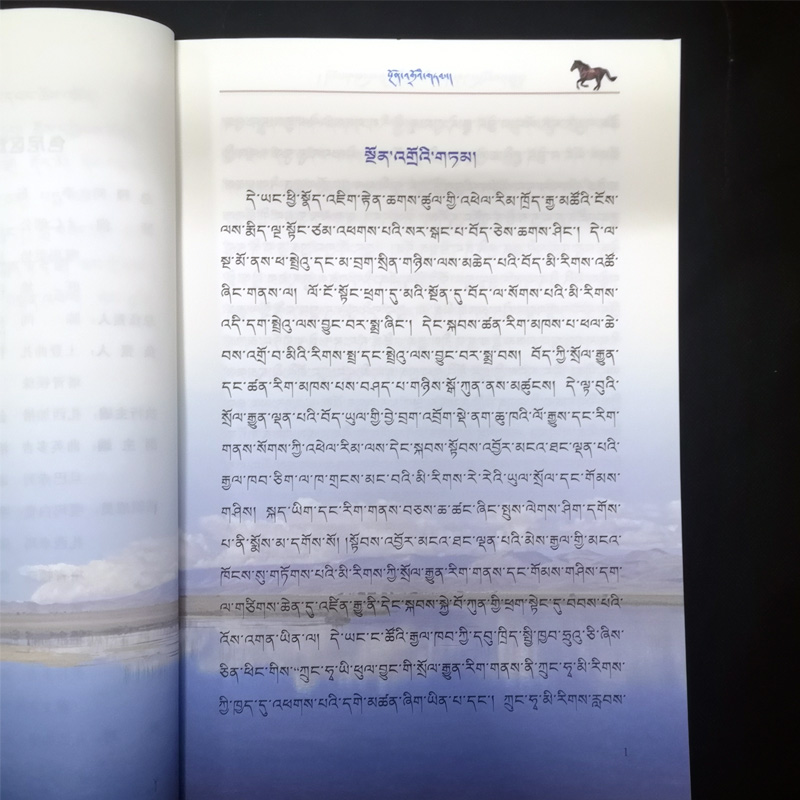 སྔོན་འགྲོའི་གཏམ།
སྔོན་འགྲོའི་གཏམ།
དེ་ཡང་ཕྱི་སྣོད་འཇིག་རྟེན་ཆགས་ཚུལ་གྱི་འཕེལ་རིམ་ཁྲོད་རྒྱ་མཚོའི་ངོས་
ལས་རྨིད་ལྔ་སྟོང་ཙམ་འཕགས་པའི་སར་སྒང་པ་བོད་ཅེས་ཆགས་ཤིང་། དེ་ལ་
སྔ་མོ་ནས་ཕ་སྤྲེའུ་དང་མ་བྲག་སྲིན་གཉིས་ལས་མཆེད་པའི་བོད་མི་རིགས་འཚོ་
ཞིང་གནས་ལ། ལོ་ངོ་སྟོང་ཕྲག་དུ་མའི་སྔོན་དུ་བོད་ལ་སོགས་པའི་མི་རིགས་
འདི་དག་སྤྲེའུ་ལས་བྱུང་བར་སྨྲ་ཞིང་། དེང་སྐབས་ཚན་རིག་མཁས་པ་ཕལ་ཆེ་
བས་འགྲོ་བ་མིའི་རིགས་སྔ་དང་སྤྲེའུ་ལས་བྱུང་བར་སྨྲ་བས། བོད་ཀྱི་སྲོལ་རྒྱུན་
དང་ཚན་རིག་མཁས་པས་བཤད་པ་གཉིས་སྒོ་ཀུན་ནས་མཚུངས། དེ་ལྟ་བུའི་
སྲོལ་རྒྱུན་ལྡན་པའི་བོད་ཡུལ་གྱི་བྱེ་བྲག་འབྲོག་སྡེ་ནག་ཆུ་ཁའི་ལོ་རྒྱུས་དང་རིག་
གནས་སོགས་ཀྱི་འཕེལ་རིམ་ལས་དེང་སྐབས་སྟོབས་འབྱོར་མངའ་ཐང་ལྡན་པའི་
རྒྱལ་ཁབ་ཅིག་ལ་ཁ་གྲངས་མང་བའི་མི་རིགས་རེ་རེའི་ཡུལ་སྲོལ་དང་གོམས་
གཤིས། སྐད་ཡིག་དང་རིག་གནས་བཅས་ཆ་ཚང་ཞིང་སྤུས་ལེགས་ཤིག་དགོས་
པ་ནི་སྨོས་མ་དགོས་སོ། །སྟོབས་འབྱོར་མངའ་ཐང་ལྡན་པའི་མེས་རྒྱལ་གྱི་མངའ་
ཁོངས་སུ་གཏོགས་པའི་མི་རིགས་ཀྱི་སྲོལ་རྒྱུན་རིག་གནས་དང་གོམས་གཤིས་དག་
ལ་གཅིགས་ཆེན་དུ་འཛིན་རྒྱུ་ནི་དེང་སྐབས་སྐྱེ་བོ་ཀུན་གྱི་ཕྲག་སྟེང་དུ་བབས་པའི་
འོས་འགན་ཡིན་ལ། དེ་ཡང་ང་ཚོའི་རྒྱལ་ཁབ་ཀྱི་དབུ་ཁྲིད་སྤྱི་ཁྱབ་ཧྲུའུ་ཅི་ཞིས་
ཅིན་ཕིང་གིས་“ཀྲུང་ཧྭ་ཡི་ཕུལ་བྱུང་གི་སྲོལ་རྒྱུན་རིག་གནས་ནི་ཀྲུང་ཧྭ་མི་རིགས་
ཀྱི་ཁྱད་དུ་འཕགས་པའི་དགེ་མཚན་ཞིག་ཡིན་པ་དང་། ཀྲུང་ཧྭ་མི་རིགས་རླབས་
1